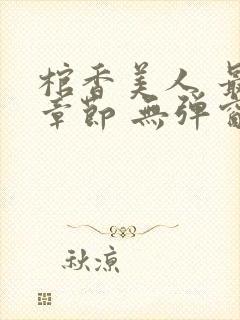 棺香美人 最
章節 無彈窗
秋涼